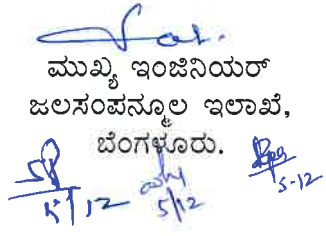 ಮುಖ್ಯ ಇಂಜಿನಿಯರ್
ಜಲಸಂಪನ್ಮೂಲ ಇಲಾಖೆ,
ಬೆಂಗಳೂರು.
5/12
5-12